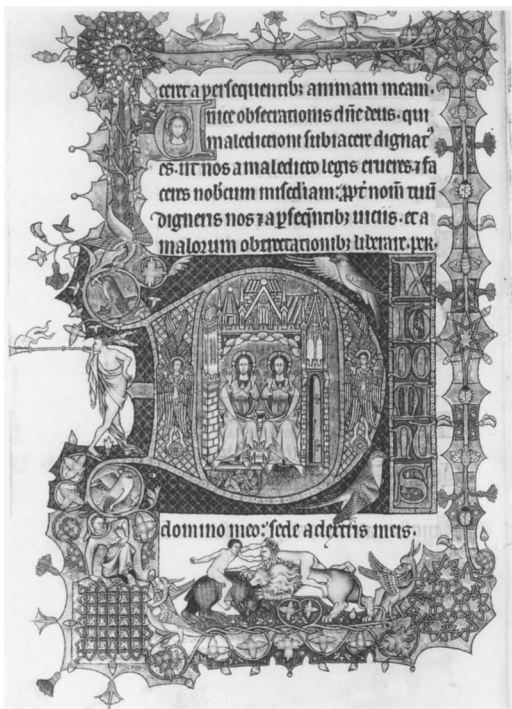 cere a persequentibꝫ animam meam.
Unice obsecrationis dñe deus. qui
maledictioni subiacere dignatꝰ
es. ut nos a maledicto legis erueres. ⁊ fa
ceres nobcum mis̃ediam: ꝓpt̃ nom̃ tuū
digneris nos ⁊ a ꝑseqn̄tibꝫ uiciis. et a
malorum obtrectationibꝫ liberare. per.
DIXIT DOMINUS
domino meo: sede a dextris meis.